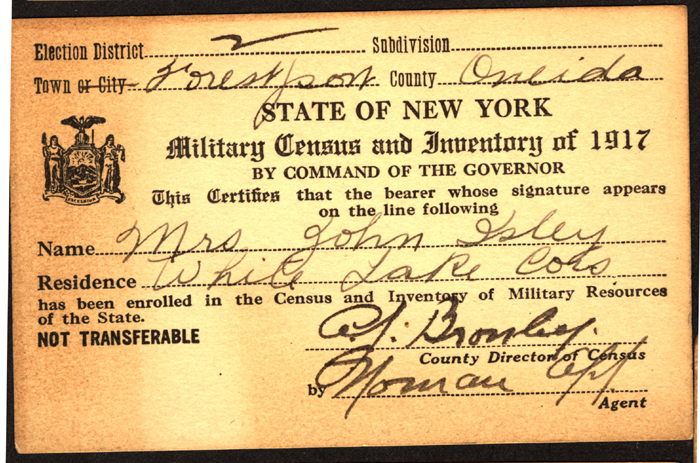 Election District 2 Subdivision
Town or City Forestport County Oneida
STATE OF NEW YORK
Military Census and Inventory of 1917
BY COMMAND OF THE GOVERNOR
This Certifies that the bearer whose signature appears
on the line following
Name Mrs John Isley
Residence White Lake Cors
has been enrolled in the Census and Inventory of Military Resources
of the State.
NOT TRANSFERABLE
County Director of Census
by Norman
Agent